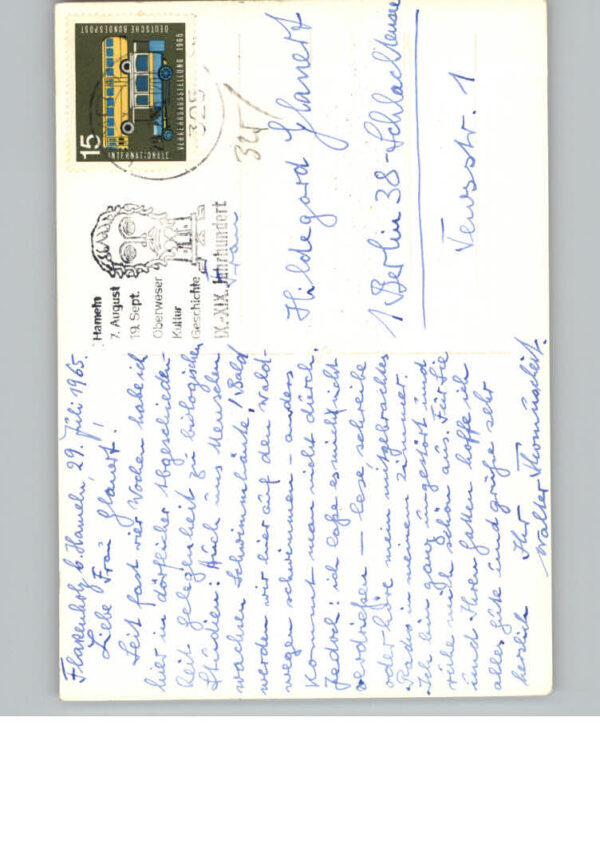 Flakenholz b. Hameln, 29. Juli 1965.
Liebe Frau Glanert!
Seit fast vier Wochen habe ich
hier in dörflicher Abgeschieden-
heit Gelegenheit zu biologischen
Studien: Auch uns Menschen
wachsen Schwimmhäute! Bald
werden wir hier auf den Wald-
wegen schwimmen – anders
kommt man nicht durch.
Jedoch: ich lasse es mich nicht
verdrießen – lese schreibe
oder höre mein mitgebrachtes
Radio in meinem Zimmer.
Ich bin ganz ungestört und
ruhe mich schön aus. Für Sie
und Ihren Gatten hoffe ich
alles Gute und grüße sehr
herzlich Ihr
Walter
Hameln
7. August
19. Sept.
Oberweser
Kultur
Geschichte
IX.-XIX. Jahrhundert
15
INTERNATIONALE
VERKEHRSAUSSTELLUNG 1965
DEUTSCHE BUNDESPOST
325
325
Frau
Hildegard Glanert
1 Berlin 38-Schlachtensee
str. 1